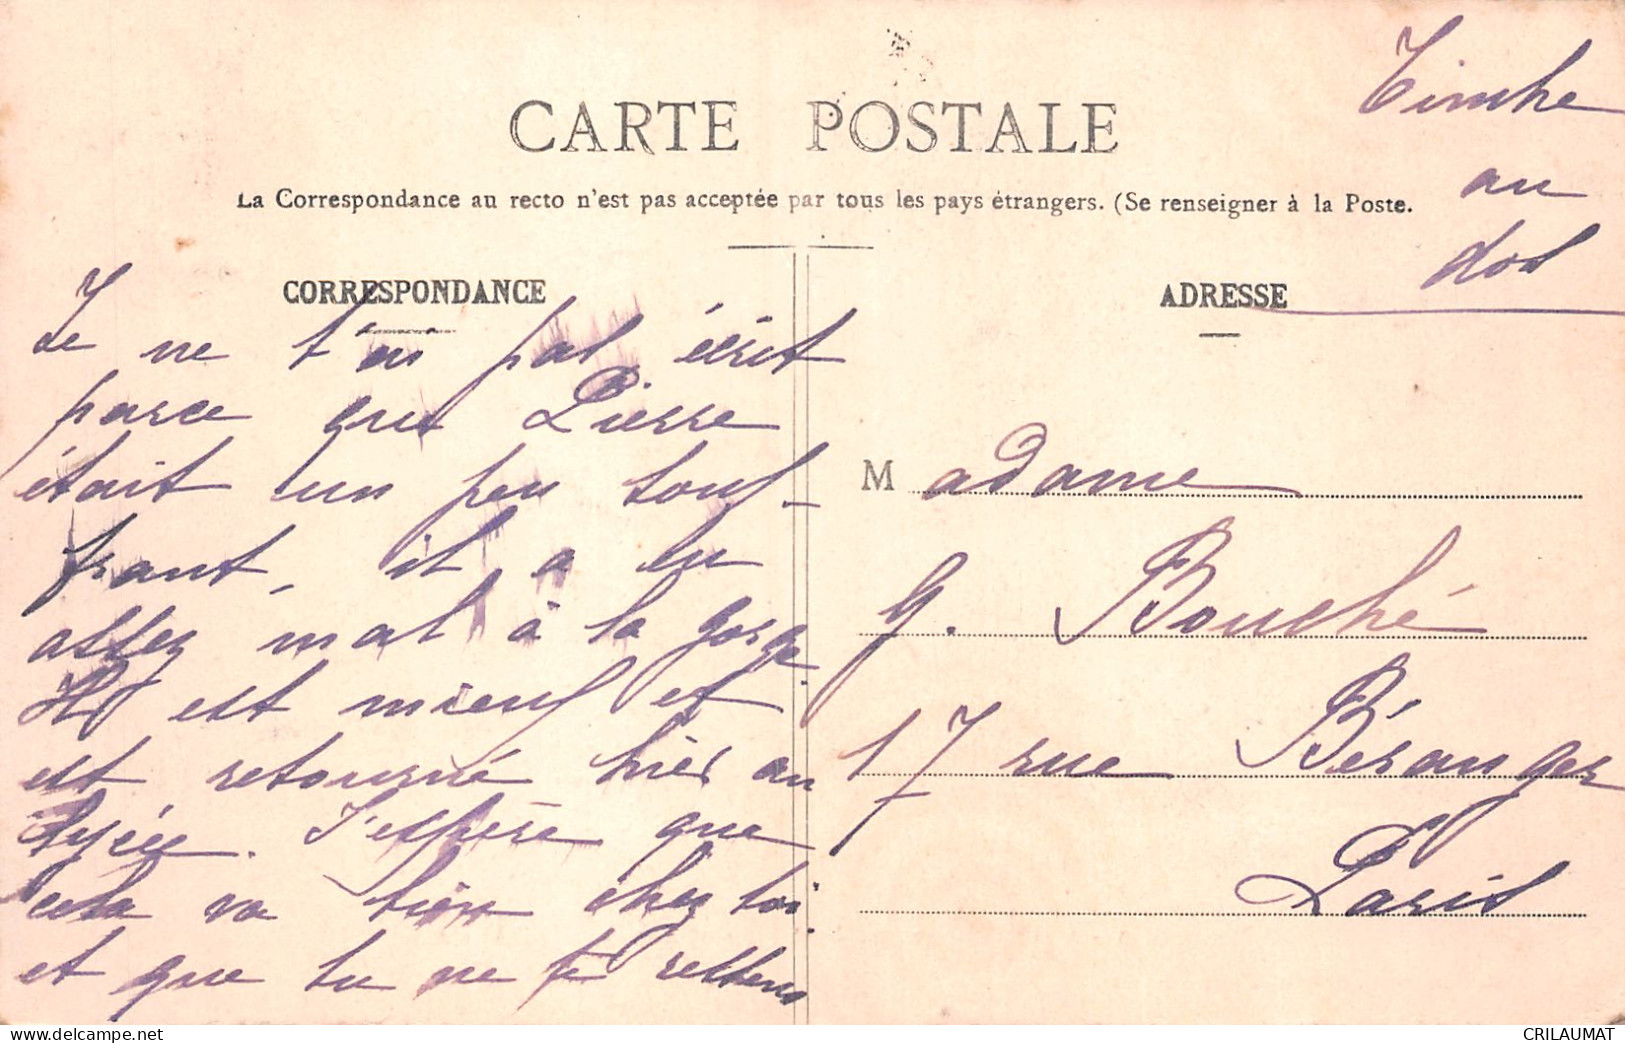 Timbre
au
dos
CARTE POSTALE
La Correspondance au recto n'est pas acceptée par tous les pays étrangers. (Se renseigner à la Poste.
CORRESPONDANCE
Je ne t'ai pas écrit
parce que Pierre
était un peu souf-
frant, il a eu
assez mal à la gorge.
Il est mieux et
est retourné hier au
lycée. J'espère que
cela va bien chez toi
et que tu ne te ressens
ADRESSE
Madame
G. Bouché
17 rue Béranger
Paris
www.delcampe.net
CRILAUMAT